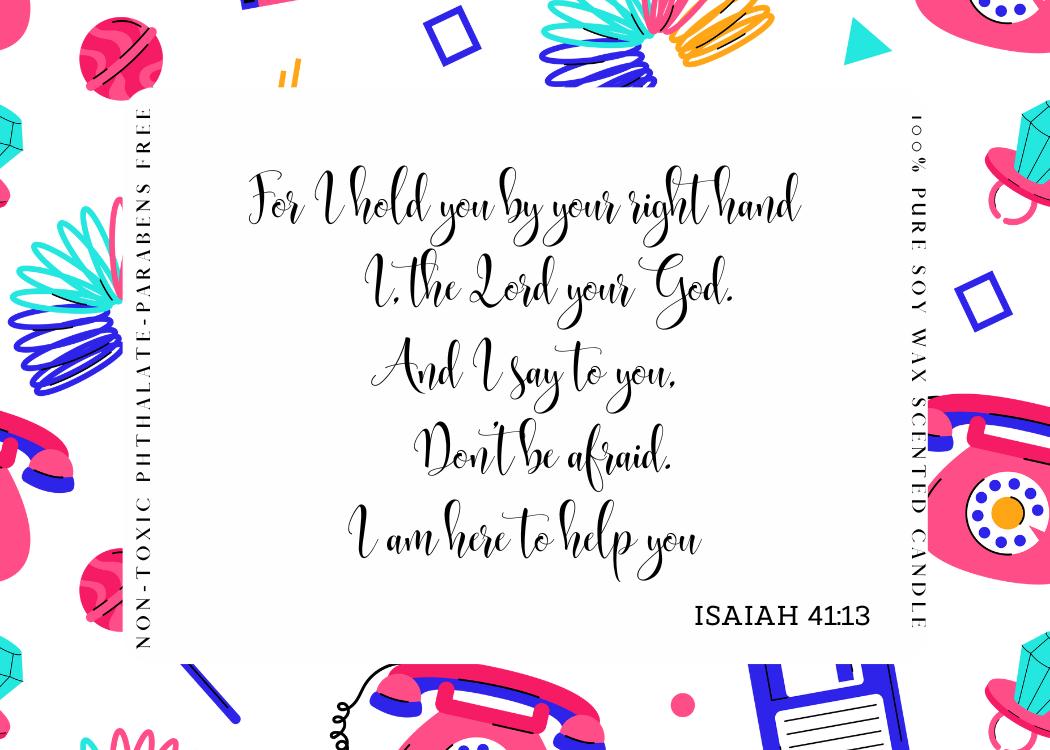 NON-TOXIC PHTHALATE-PARABENS FREE
For I hold you by your right hand
I, the Lord your God.
And I say to you,
Don't be afraid.
I am here to help you
ISAIAH 41:13
100% PURE SOY WAX SCENTED CANDLE